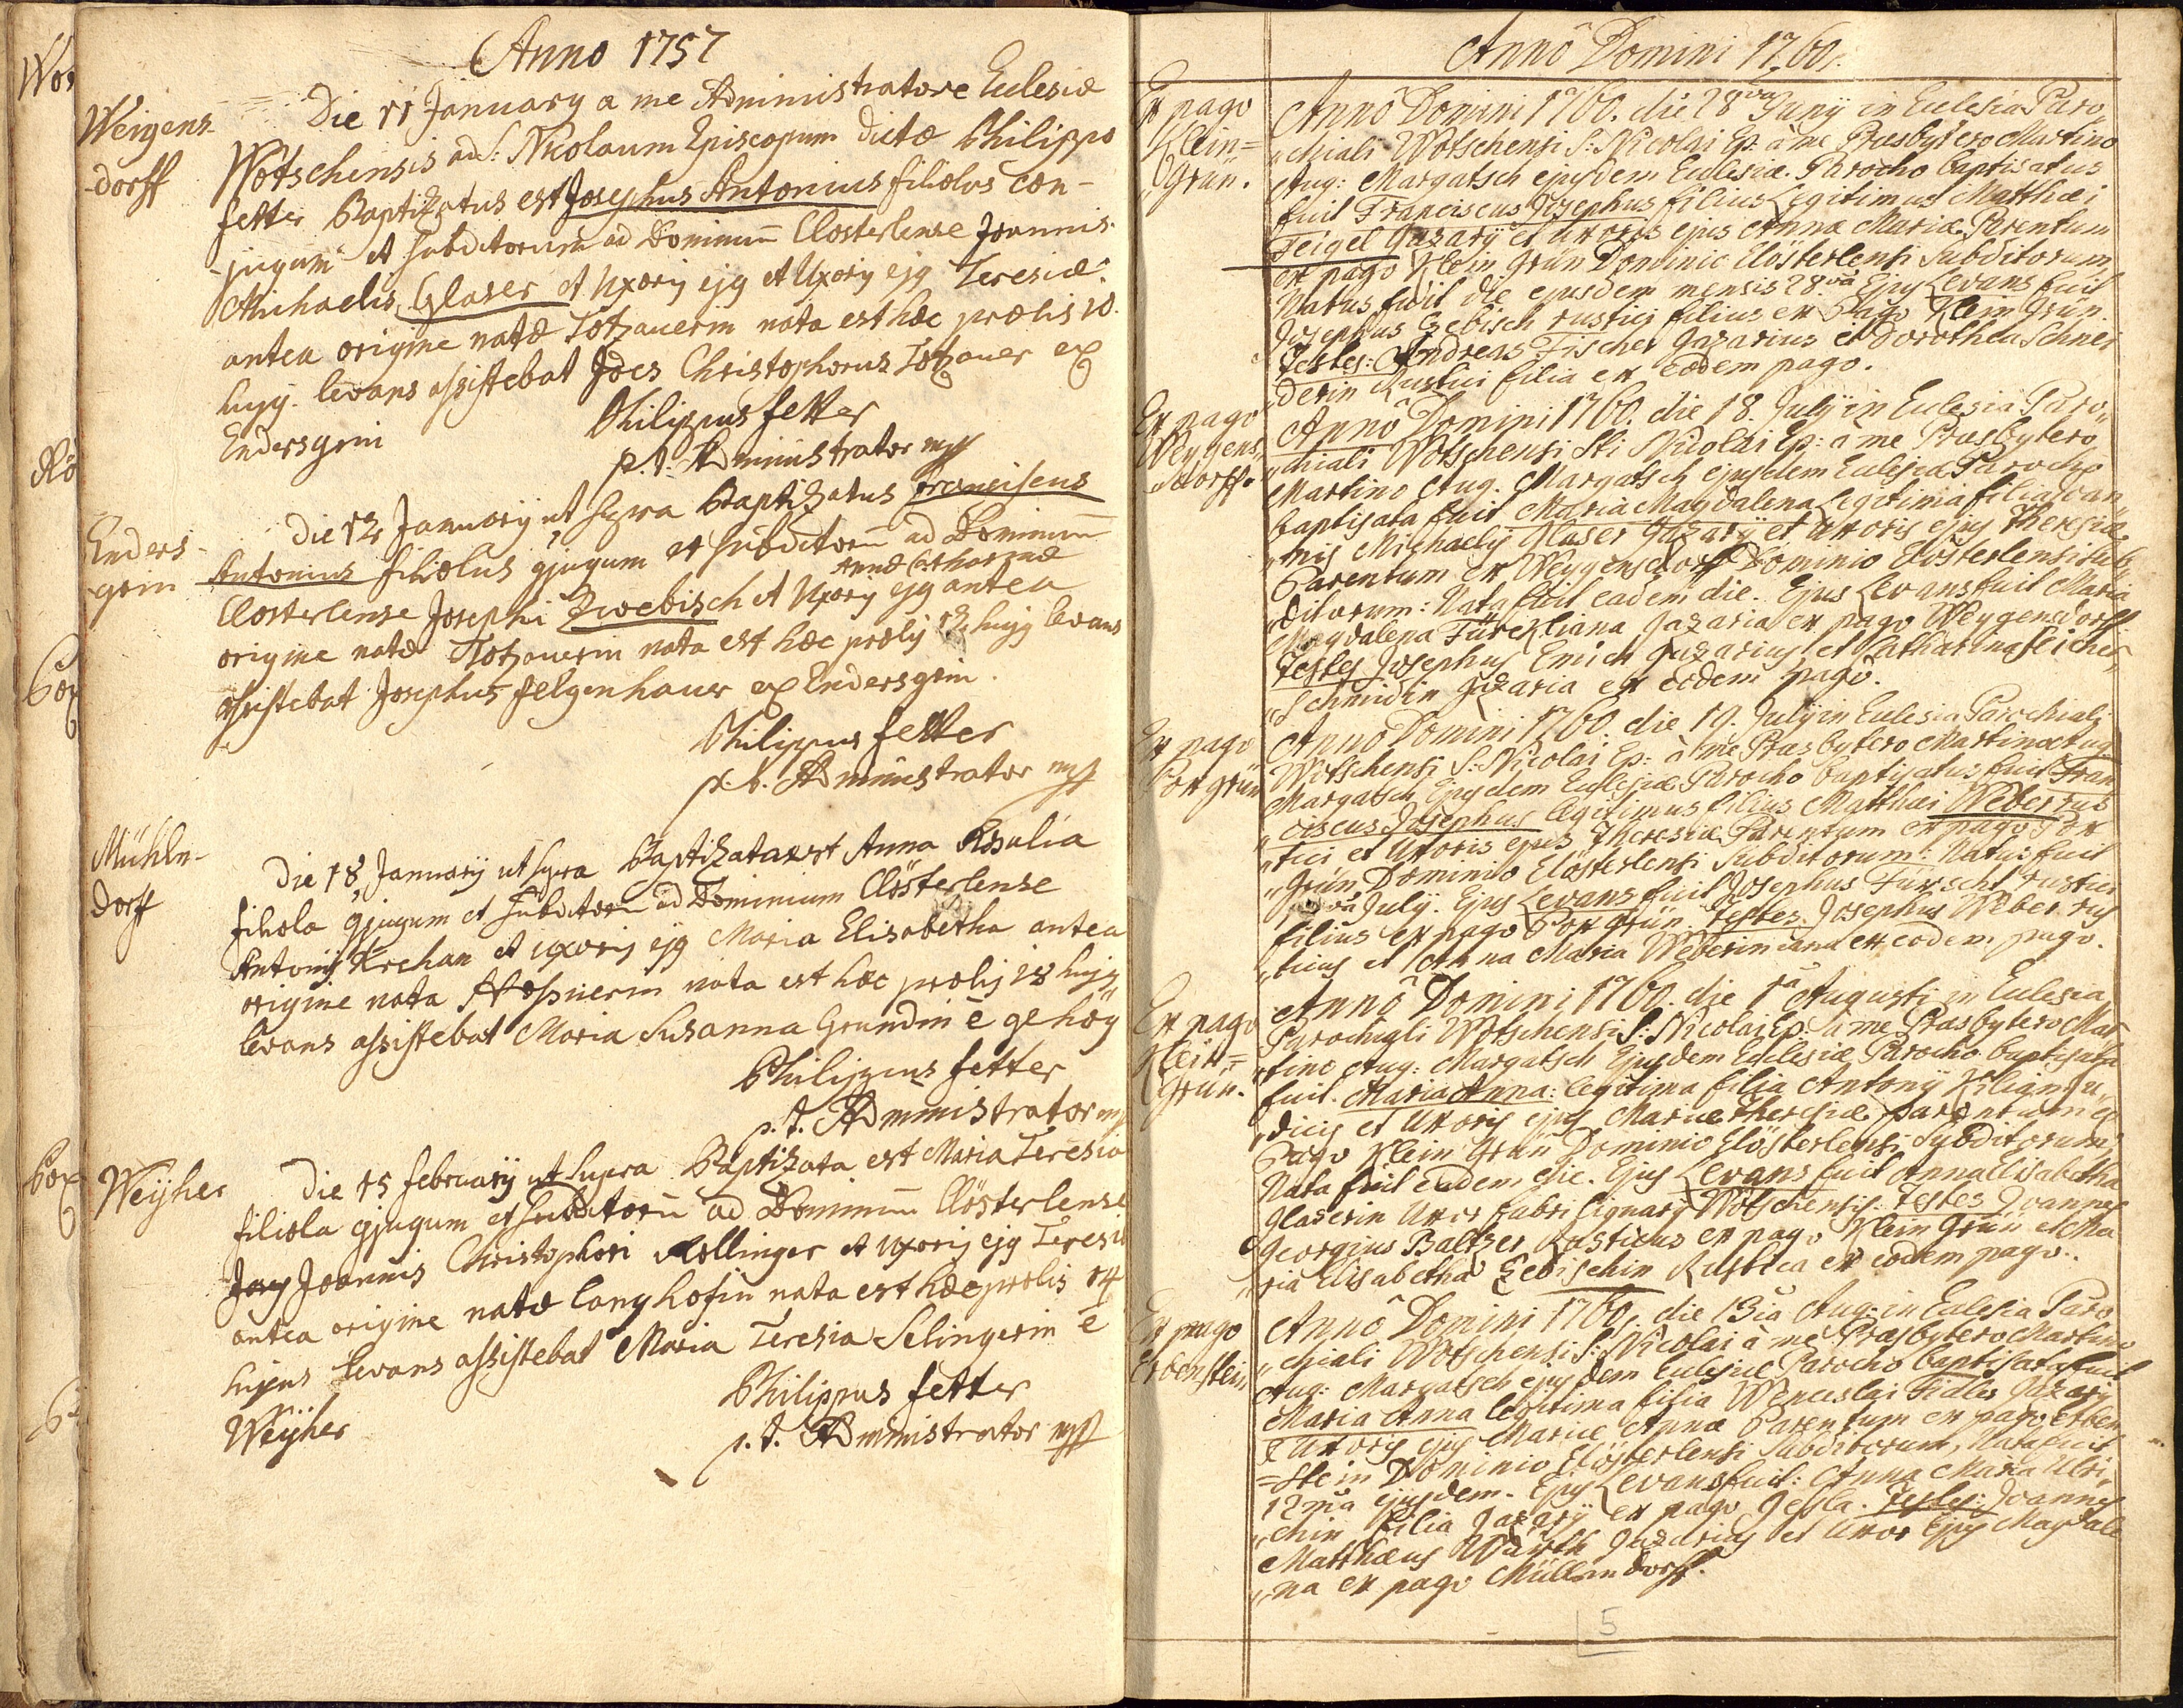 Anno 1757
Weigens-
-dorff
Die 11 January a me Administratore Eclesiæ
Wotschensis ad S: Nicolaum Episcopum dictæ Philippo
fetter Baptizatus est Josephus Antonius filiolus con-
-jugum et subditorum ad Dominium Closterlense Joannis
Michaelis Glaser et Uxoris ejg et Uxoris ejg Teresiæ
antea origine natæ Totzauerin nata est hæc prolis 10
hujg. levans assistebat Joes Christophorus Totzauer ex
Endersgrin
Philippus fetter
p.t. Administrator mpp
Enders-
-grin
Die 12 January ut supra Baptizatus Franciscus
Antonius filiolus gjugum et subditorum ad Dominium
Annæ Catharinæ
Closterlense Josephi Zwebisch et Uxoris ejg antea
origine natæ Totzauerin nata est hæc prolis 12 hujg levans
assistebat Josephus Felgenhauer ex Endersgrin.
Philippus fetter
p.t. Administrator mpp
Mühln-
dorff
Die 18 Januarij ut supra Baptizata est Anna Rosalia
filiola gjugum et subditorum ad Dominium Clösterlense
Antonij Krehan et uxoris ejg Maria Elisabetha antea
origine nata nata est hæc prolis 18 hujg
levans assistebat Maria Susanna Grundin ê gehöy
Philippus fetter
p.t. Administrator mpp
Weÿher
Die 15 februarij ut supra Baptizata est Maria Teresia
filiola gjugum et subditorum ad Dominium Clösterlense
Joannis Christophori Rollinger et Uxoris ejg Teresiæ
antea origine natæ langhofin nata est hæc prolis 14
hujus levans assistebat Maria Teresia Selingerin ê
Weÿher
Philippus fetter
p.t. Administrator mpp
Annô Domini 1760.
Ex pago
Klein=
Grün.
Annô Domini 1760. die 28va Junÿ in Eclesia Paro„
„chiali Wotschensi S: Nicolai Ep: à me Præsbytero Martino
Aug: Margatsch ejusdem Eclesiæ Parocho baptisatus
fuit Franciscus Josephus filius Legitimus Matthæi
Feigel Gazarÿ et uxoris ejus Annæ Mariæ Parentum
ex pago Klein Grün Dominio Clösterlensi Subditorum
Natus fuit die ejusdem mensis 28va Ejus Levans fuit
Josephus Zebisch rustici filius ex Pago Klein Grün.
Testes: Andreas Fischer Gazarius et Dorothea Schnei
„derin Rustici filia ex eodem pago.
Ex pago
Weygens„
„dorff.
Annô Domini 1760. die 18. Julÿ in Eclesia Paro„
„chiali Wotschensi Sti Nicolai Ep: à me Præsbytero
Martino Aug. Margatsch ejusdem Eclesiæ Parocho
baptisata fuit Maria Magdalena Legitima filia Joan„
„nis Michaelis Glaser Gazarÿ et uxoris ejus Theresiæ
Parentum ex Weygensdorff Dominio Clösterlensi Sub„
„ditorum: Nata fuit eadem die. Ejus Levans fuit Maria
Magdalena Türckliana Gazaria ex pago Weygensdorff
Testes Josephus Emich Gazarius et Catharina Teicher„
„Schmidin Gazaria ex eodem pago.
Ex pago
Pox grün
Annô Domini 1760. die 19. Julÿ in Eclesia Parochiali
Wotschensi S: Nicolai Ep: à me Præsbytero Martino Aug
Margatsch Ejusdem Eclesiæ Parocho baptisatus fuit Fran
„ciscus Josephus legitimus filius Matthæi Weber rus
„tici et Uxoris ejus Theresiæ Parentum ex pago Pox
„Grün Dominio Clösterlensi Subditorum: Natus fuit
Julÿ. Ejus Levans fuit Josephus Türschl rustici
filius ex pago Pox grün. Testes Josephus Weber rus
„ticus et Anna Maria Weberiniana ex eodem pago.
Ex pago
Klein=
Grün.
Annô Domini 1760. die 1a Augusti in Eclesia
Parochiali Wotschensi S: Nicolai Ep: à me Præsbytero Mar
„tino Aug: Margatsch Ejusdem Eclesiæ Parocho baptisata
fuit. Maria Anna: legitima filia Antonÿ Kilian Ju„
„dicis et Uxoris ejus Mariæ Theresiæ parentum ex
Pago Klein Grün Dominio Clösterlensi Subditorum,
Nata fuit eadem die. Ejus Levans fuit Anna Elisabetha
Glaserin Uxor fabri lignarÿ Wotschensis: Testes Joannes
Georgius Baltzer Rusticus ex pago Klein Grün et Ma
„ria Elisabetha Zebischin Rustica ex eodem pago.
Ex pago
Erbenstein
Annô Domini 1760. die 13ia Aug: in Eclesia Paro
„chiali Wotschensi S: Nicolai à me Præsbytero Martino
Aug: Margatsch ejusdem Eclesiæ Parocho baptisata fuit
Maria Anna legitima filia Wenceslai Fidlis Gazarÿ
& Uxoris ejus Mariæ Annæ Parentum ex pago Erben
=stein Dominio Clösterlensi Subditorum, Nata fuit
12ma ejusdem. Ejus Levans fuit: Anna Maria Ulri„
„chin filia Gazarÿ ex pago Gesla. Testes: Joannes
Matthæus Würth Gazarius et Uxor Ejus Magdale
„na ex pago Müllendorff.
5